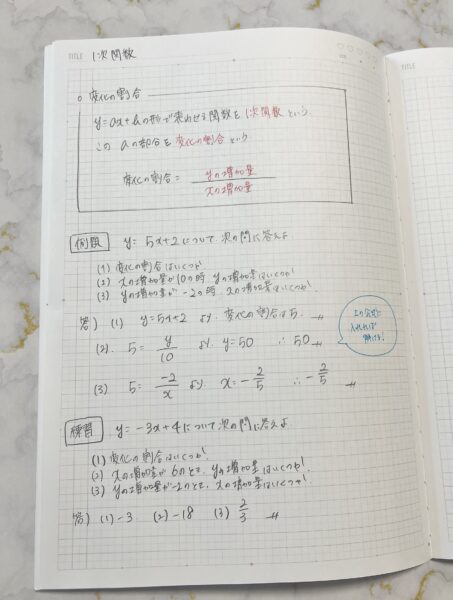 TITLE 1次関数
○ 変化の割合
y=ax+bの形で表わせる関数を1次関数という.
この aの部分を変化の割合という
変化の割合 = yの増加量/xの増加量
例題 y= 5x+2について次の問に答えよ.
(1) 変化の割合はいくつか!
(2) xの増加量が10の時, yの増加量はいくつか!
(3) yの増加量が -2の時, xの増加量はいくつか!
答) (1) y=5x+2 より 変化の割合は5.
(2). 5= y/10 より y=50 ∴ 50
上の公式に
入れれば
解ける!
(3) 5= -2/x より x=-2/5 ∴ -2/5
練習 y= -3x+4について次の問に答えよ
(1) 変化の割合はいくつか!
(2) xの増加量が 6のとき, yの増加量はいくつか!.
(3) yの増加量が-2のとき, xの増加量はいくつか!
答) (1) -3 (2) -18 (3) 2/3
TITLE